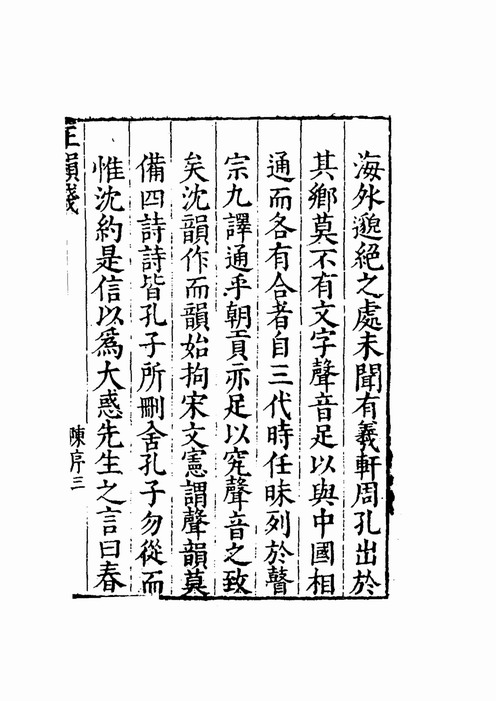 海外邈絕之處未聞有羲軒周孔出於
其鄉莫不有文字聲音足以與中國相
通而各有合者自三代時任昧列於瞽
宗九譯通乎朝貢亦足以究聲音之致
矣沈韻作而韻始拘宋文憲謂聲韻莫
備四詩詩皆孔子所刪舍孔子勿從而
惟沈約是信以爲大惑先生之言曰春
韻箋
陳序三